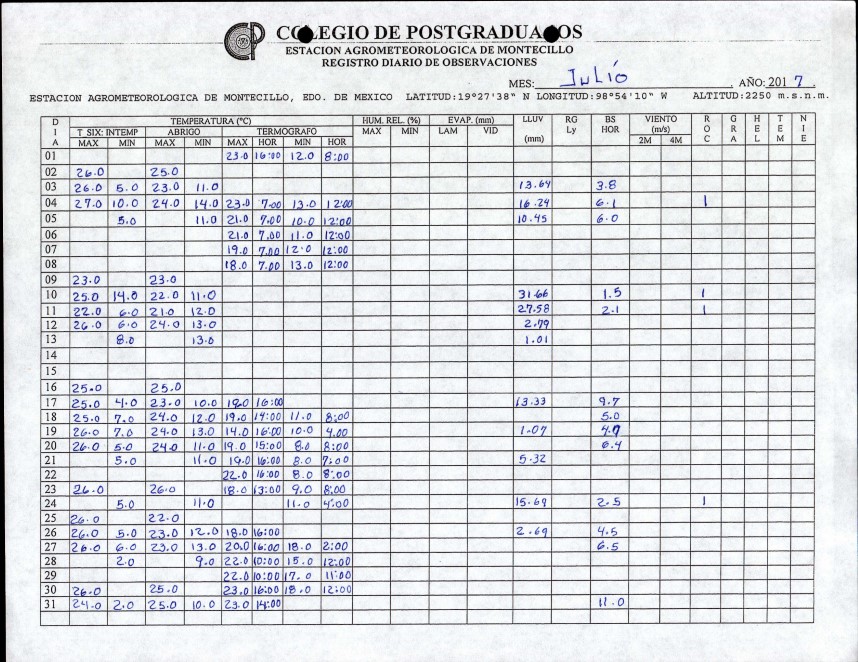 COLEGIO DE POSTGRADUADOS
ESTACION AGROMETEOROLOGICA DE MONTECILLO
REGISTRO DIARIO DE OBSERVACIONES
MES: Julio AÑO: 2017.
ESTACION AGROMETEOROLOGICA DE MONTECILLO, EDO. DE MEXICO LATITUD:19°27'38" N LONGITUD:98°54'10" W ALTITUD:2250 m.s.n.m.
DIA TEMPERATURA (°C) HUM. REL. (%) EVAP. (mm) LLUV RG BS VIENTO ROC GRA HEL TEM NIE
T SIX: INTEMP ABRIGO TERMOGRAFO MAX MIN LAM VID (mm) Ly HOR (m/s)
MAX MIN MAX MIN MAX HOR MIN HOR 2M 4M
01 23.0 16:00 12.0 8:00
02 26.0 25.0
03 26.0 5.0 23.0 11.0 13.64 3.8
04 27.0 10.0 24.0 14.0 23.0 7.00 13.0 12:00 16.24 6.1 1
05 5.0 11.0 21.0 7.00 10.0 12:00 10.45 6.0
06 21.0 7.00 11.0 12:00
07 19.0 7.00 12.0 12:00
08 18.0 7.00 13.0 12:00
09 23.0 23.0
10 25.0 14.0 22.0 11.0 31.66 1.5 1
11 22.0 6.0 21.0 12.0 27.58 2.1 1
12 26.0 6.0 24.0 13.0 2.79
13 8.0 13.0 1.01
14
15
16 25.0 25.0
17 25.0 4.0 23.0 10.0 19.0 16:00 13.33 9.7
18 25.0 7.0 24.0 12.0 19.0 14:00 11.0 8:00 5.0
19 26.0 7.0 24.0 13.0 14.0 16:00 10.0 4.00 1.07
20 26.0 5.0 24.0 11.0 19.0 15:00 8.0 8:00 6.4
21 5.0 11.0 19.0 16:00 8.0 7:00 5.32
22 22.0 16:00 8.0 8:00
23 26.0 26.0 18.0 13:00 9.0 8:00
24 5.0 11.0 11.0 4:00 15.69 2.5 1
25 26.0 22.0
26 26.0 5.0 23.0 12.0 18.0 16:00 2.69 4.5
27 26.0 6.0 23.0 13.0 20.0 16:00 18.0 2:00 6.5
28 2.0 9.0 22.0 10:00 15.0 12:00
29 22.0 10:00 17.0 11:00
30 26.0 25.0 23.0 16:00 18.0 12:00
31 24.0 2.0 25.0 10.0 23.0 14:00 11.0